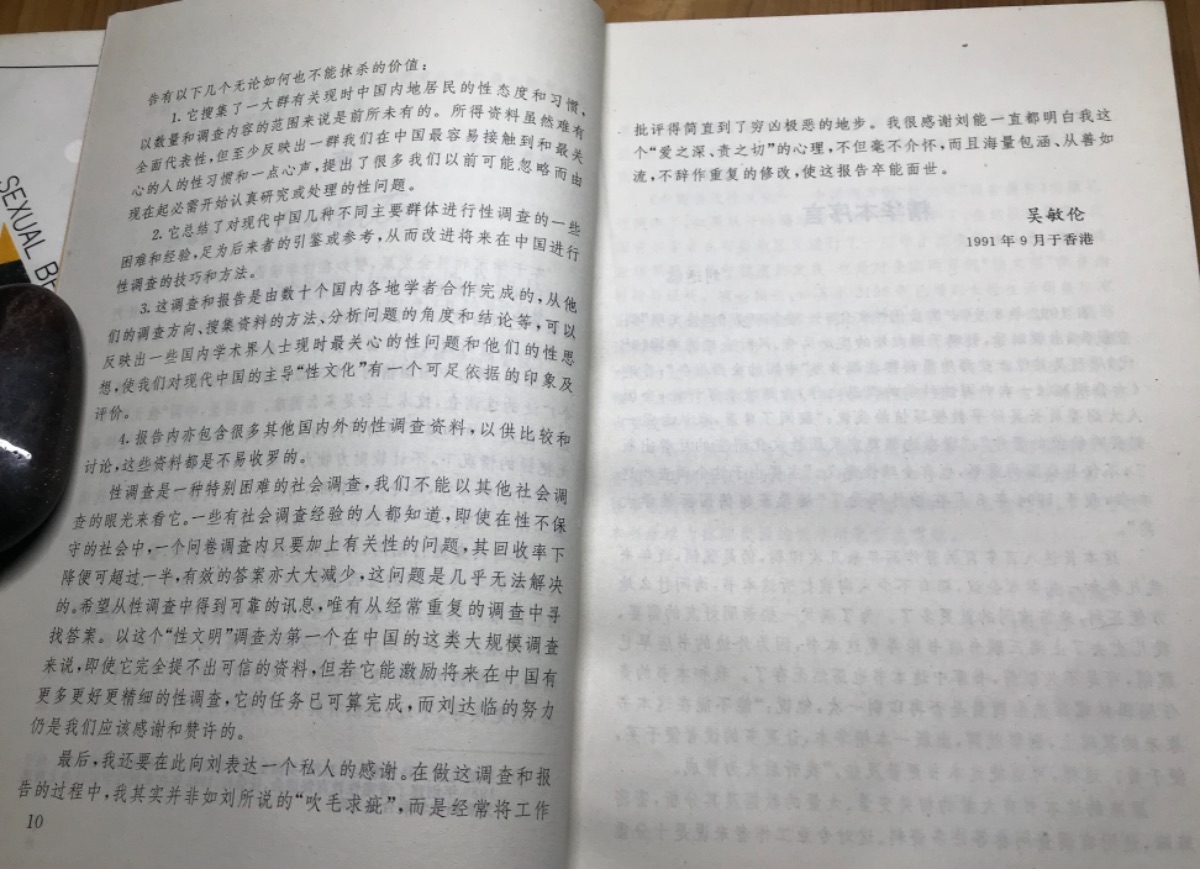 SEXUAL BE
告有以下几个无论如何也不能抹杀的价值：
1. 它搜集了一大群有关现时中国内地居民的性态度和习惯，
以数量和调查内容的范围来说是前所未有的。所得资料虽然难有
全面代表性，但至少反映出一群我们在中国最容易接触到和最关
心的人的性习惯和一点心声，提出了很多我们以前可能忽略而由
现在起必需开始认真研究或处理的性问题。
2. 它总结了对现代中国几种不同主要群体进行性调查的一些
困难和经验，足为后来者的引鉴或参考，从而改进将来在中国进行
性调查的技巧和方法。
3. 这调查和报告是由数十个国内各地学者合作完成的，从他
们的调查方向、搜集资料的方法、分析问题的角度和结论等，可以
反映出一些国内学术界人士现时最关心的性问题和他们的性思
想，使我们对现代中国的主导“性文化”有一个可足依据的印象及
评价。
4. 报告内亦包含很多其他国内外的性调查资料，以供比较和
讨论，这些资料都是不易收罗的。
性调查是一种特别困难的社会调查，我们不能以其他社会调
查的眼光来看它。一些有社会调查经验的人都知道，即使在性不保
守的社会中，一个问卷调查内只要加上有关性的问题，其回收率下
降便可超过一半，有效的答案亦大大减少，这问题是几乎无法解决
的。希望从性调查中得到可靠的讯息，唯有从经常重复的调查中寻
找答案。以这个“性文明”调查为第一个在中国的这类大规模调查
来说，即使它完全提不出可信的资料，但若它能激励将来在中国有
更多更好更精细的性调查，它的任务已可算完成，而刘达临的努力
仍是我们应该感谢和赞许的。
最后，我还要在此向刘表达一个私人的感谢。在做这调查和报
告的过程中，我其实并非如刘所说的“吹毛求疵”，而是经常将工作
10
批评得简直到了穷凶极恶的地步。我很感谢刘能一直都明白我这
个“爱之深、责之切”的心理，不但毫不介怀，而且海量包涵、从善如
流，不辞作重复的修改，使这报告卒能面世。
吴敏伦
1991 年 9 月于香港